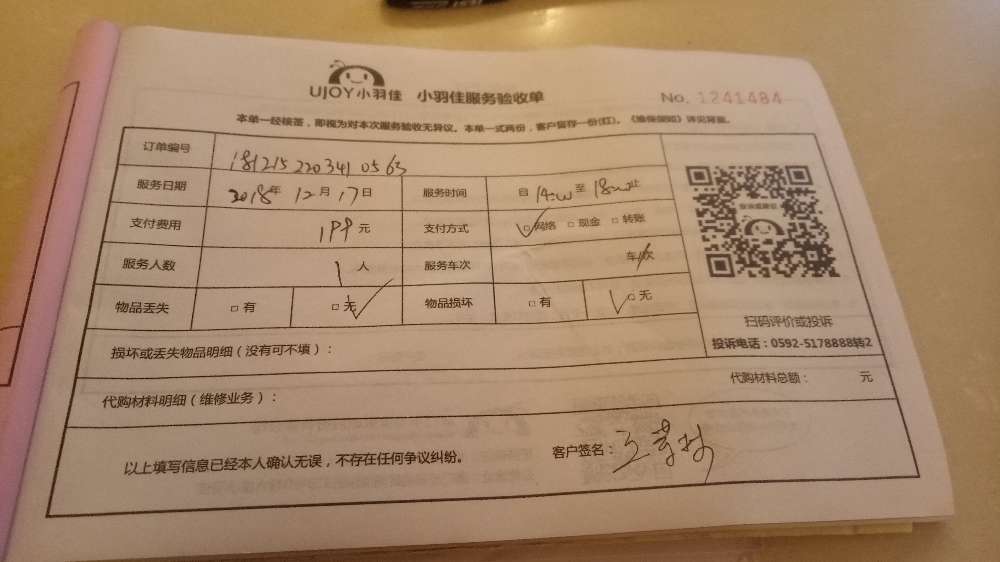 UJOY小羽佳 小羽佳服务验收单 No. 1241484
本单一经核签，即视为对本次服务验收无异议。本单一式两份，客户留存一份(红)。《维保须知》详见背面。
订单编号 181215 220341 0563
服务日期 2018年 12月 17日 服务时间 自 14:00 至 18:00 止
支付费用 199元 支付方式 ☑网络 □现金 □转账
服务人数 1人 服务车次 车/次
物品丢失 □有 ☑无 物品损坏 □有 ☑无
扫码评价或投诉
投诉电话：0592-5178888转2
损坏或丢失物品明细（没有可不填）：
代购材料明细（维修业务）： 代购材料总额： 元
以上填写信息已经本人确认无误，不存在任何争议纠纷。 客户签名：